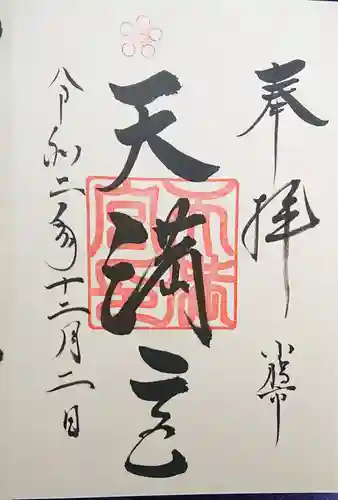 奉拝
天満宮
令和二年十二月二日